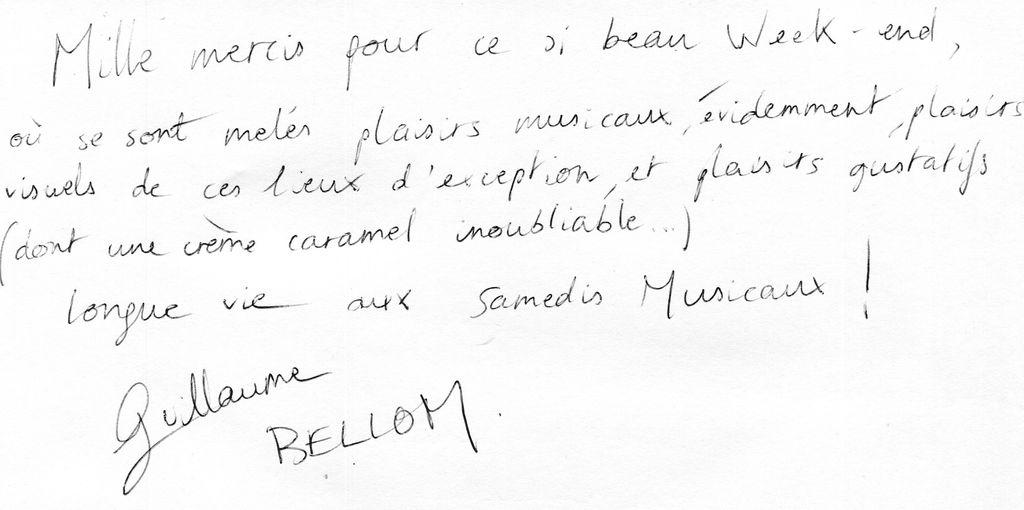 Mille mercis pour ce si beau Week-end,
où se sont melés plaisirs musicaux, évidemment, plaisirs
visuels de ces lieux d'exception, et plaisirs gustatifs
(dont une crème caramel inoubliable...)
longue vie aux Samedis Musicaux !
Guillaume
BELLOM.